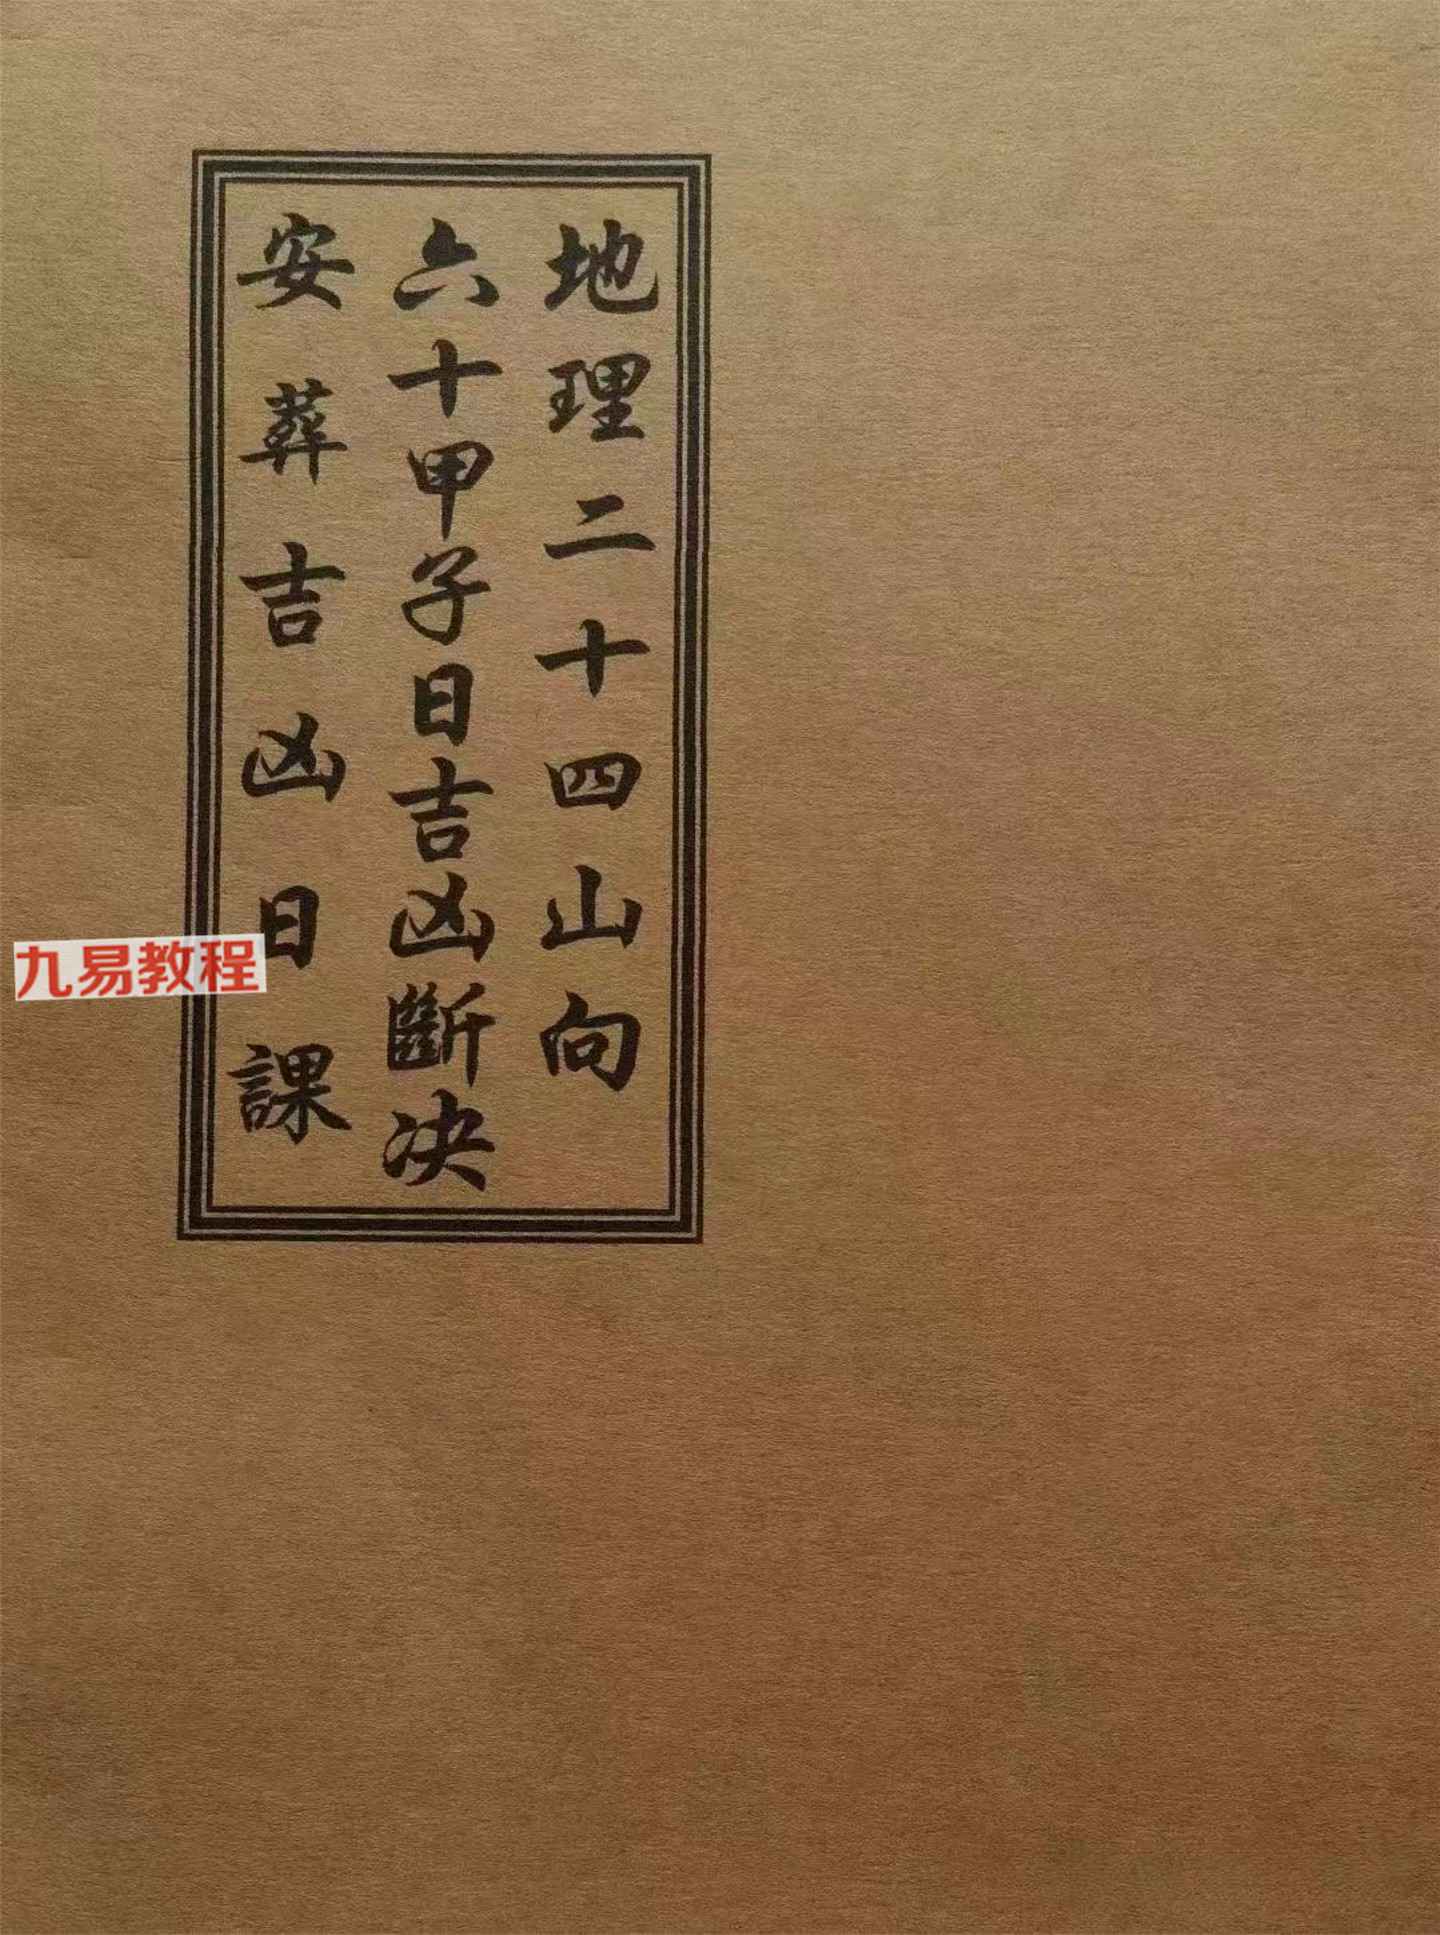 地理二十四山向
六十甲子日吉凶斷决
安葬吉凶日課
九易教程